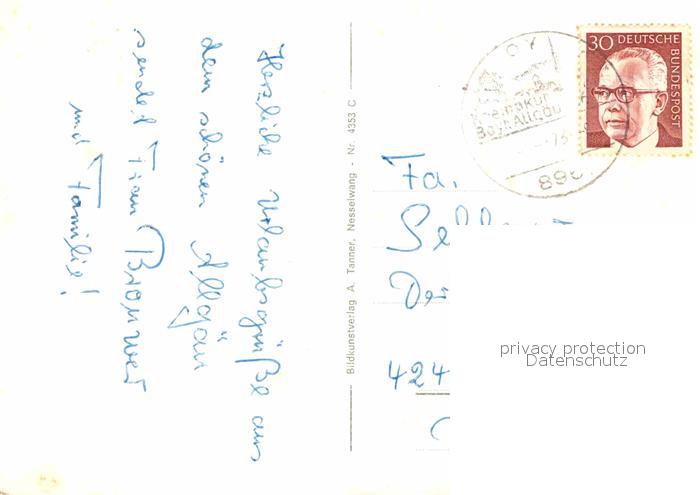 Herzliche Urlaubsgrüße aus
dem schönen Allgäu
sendet Fam
und Familie!
Bildkunstverlag A. Tanner, Nesselwang - Nr. 4353 C
30 DEUTSCHE
BUNDESPOST
OY
Bay. Allgäu
Fa.
424
privacy protection
Datenschutz